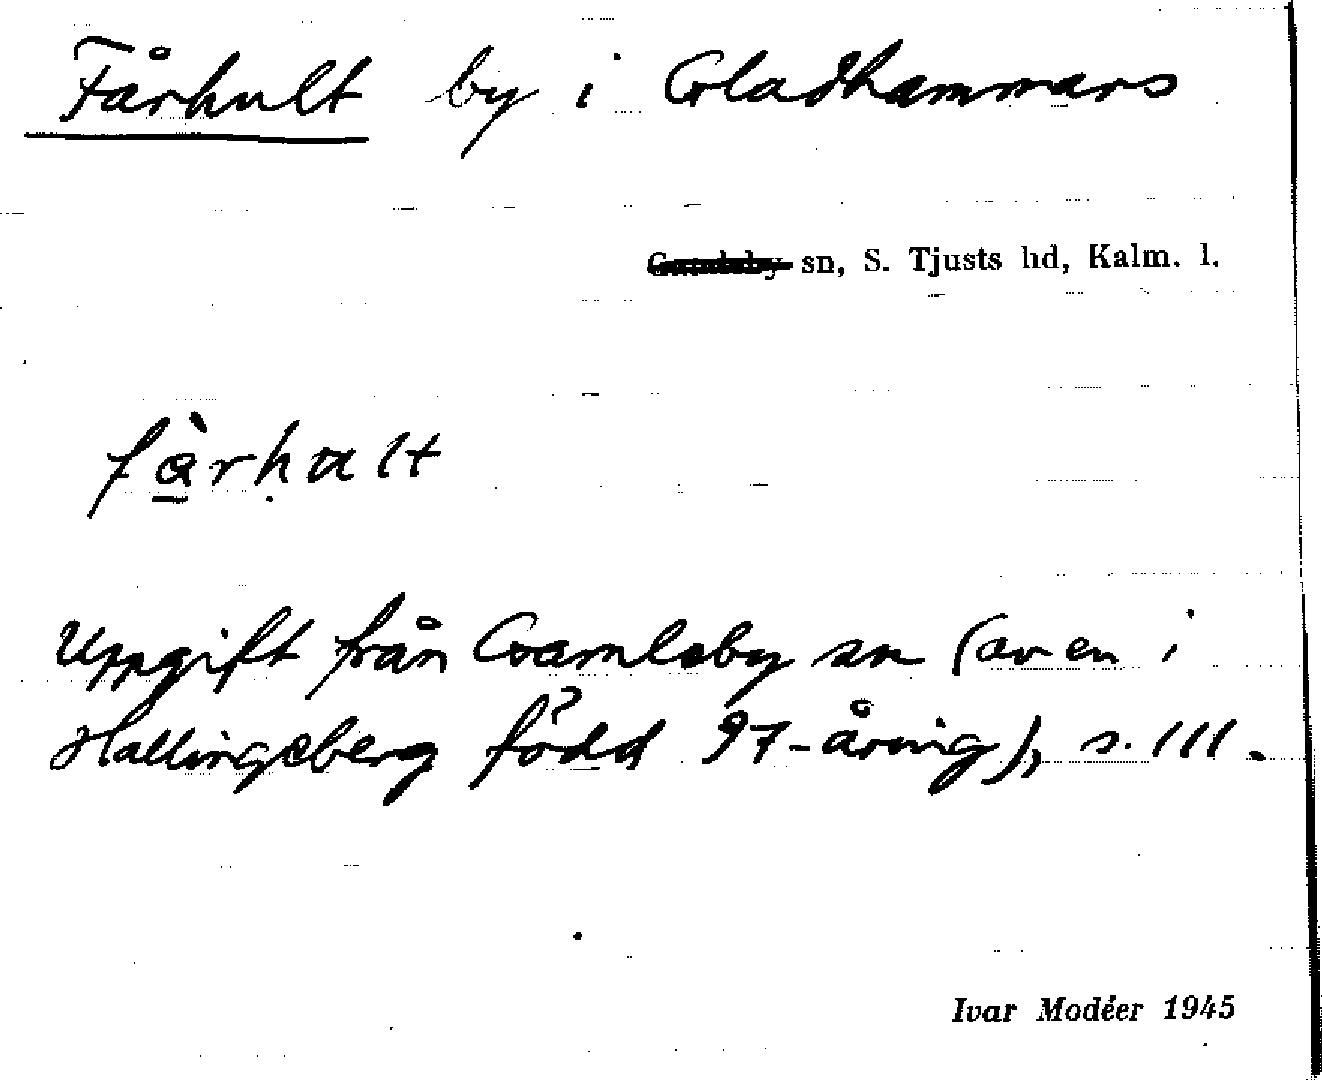 Fårhult by i Gladhammars
Gamleby sn, S. Tjusts hd, Kalm. l.
fàrhalt
Uppgift från Gamleby sn (av en i
Hallingeberg född 97-åring), s. 111.
Ivar Modéer 1945